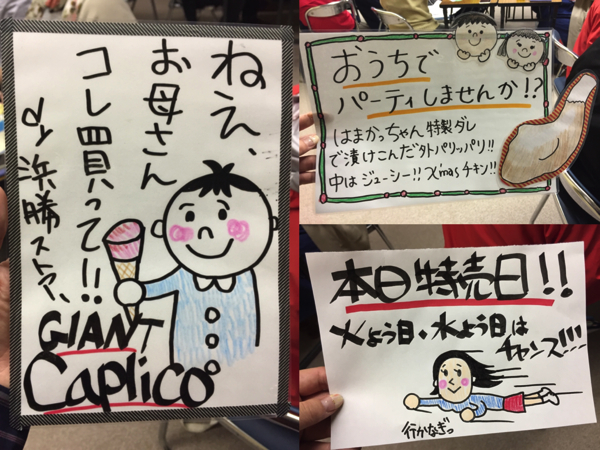 ねえ、
お母さん
コレ買って!!
by 浜勝ストアー
GIANT
Caplico
おうちで
パーティしませんか!?
はまかっちゃん特製ダレ
で漬けこんだ外パリッパリ!!
中はジューシー!! X'masチキン!!
本日特売日!!
火よう日・水よう日は
チャンス!!!
行かなきっ